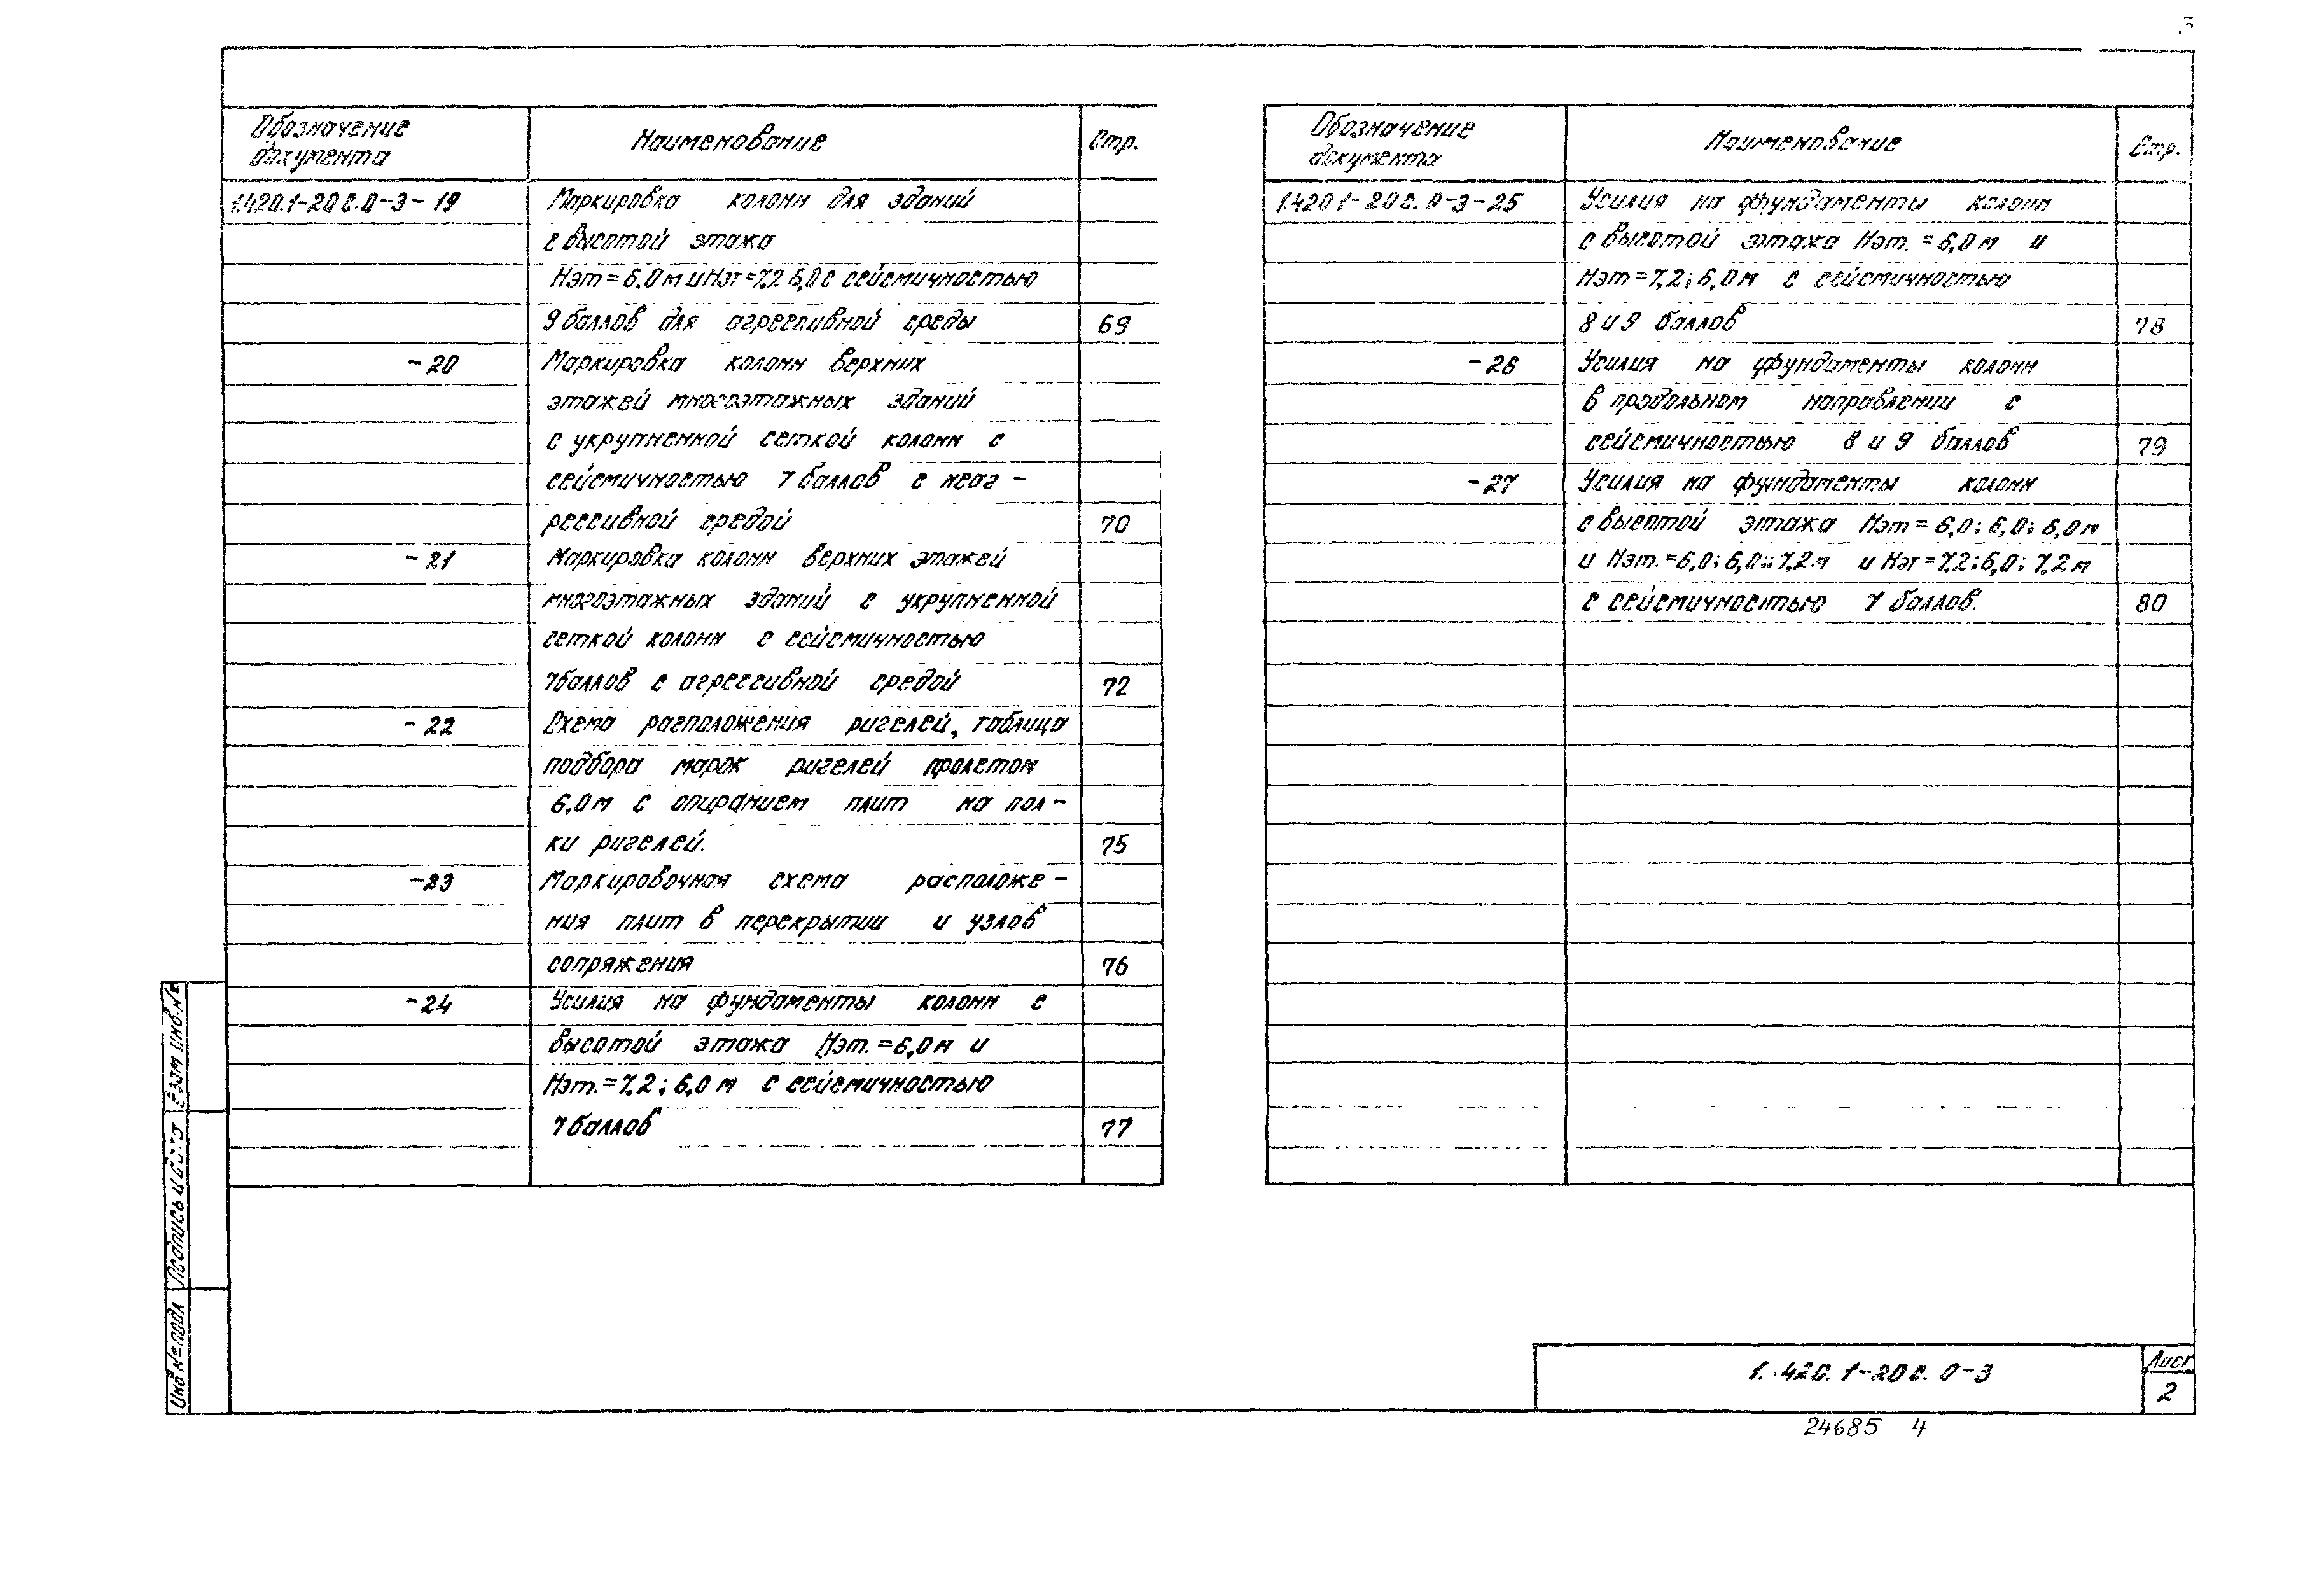 Обозначение документа Наименование Стр.
1.420.1-20с.0-3-19 Маркировка колонн для зданий
с высотой этажа
Нэт=6.0м и Нэт=7,2 6,0 с сейсмичностью
9 баллов для агрессивной среды 69
-20 Маркировка колонн верхних
этажей многоэтажных зданий
с укрупненной сеткой колонн с
сейсмичностью 7 баллов с неаг-
рессивной средой 70
-21 Маркировка колонн верхних этажей
многоэтажных зданий с укрупненной
сеткой колонн с сейсмичностью
7 баллов с агрессивной средой 72
-22 Схема расположения ригелей, таблица
подбора марок ригелей пролетом
6,0м с опиранием плит на пол-
ки ригелей. 75
-23 Маркировочная схема расположе-
ния плит в перекрытии и узлов
сопряжения 76
-24 Усилия на фундаменты колонн с
высотой этажа Нэт.=6,0м и
Нэт.=7,2; 6,0 м с сейсмичностью
7 баллов 77
Обозначение документа Наименование Стр.
1.420.1-20с.0-3-25 Усилия на фундаменты колонн
с высотой этажа Нэт.=6,0м и
Нэт=7,2; 6,0м с сейсмичностью
8 и 9 баллов 78
-26 Усилия на фундаменты колонн
в продольном направлении с
сейсмичностью 8 и 9 баллов 79
-27 Усилия на фундаменты колонн
с высотой этажа Нэт=6,0; 6,0; 6,0м
и Нэт.=6,0; 6,0; 7,2м и Нэт=7,2; 6,0; 7,2м
с сейсмичностью 7 баллов. 80
Взам инв.№
Подпись и дата
Инв.№ подл
1.420.1-20с.0-3
Лист
2
24685 4